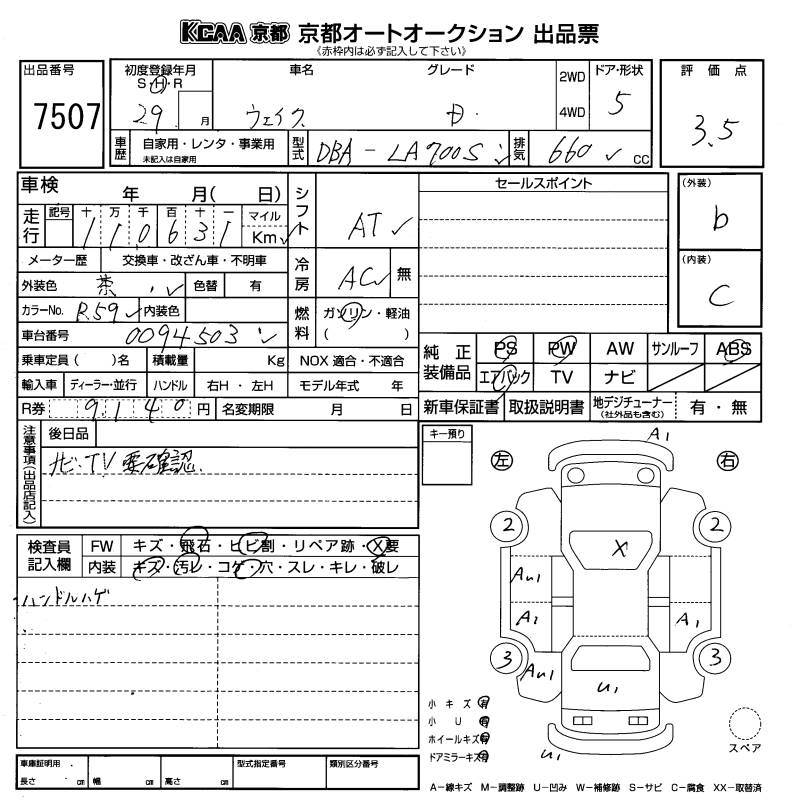 KCAA 京都 京都オートオークション 出品票
《赤枠内は必ず記入して下さい》
出品番号
7507
初度登録年月
S・H・R
29 月
車名
ウェイク
グレード
D
2WD
4WD
ドア・形状
5
評価点
3.5
車歴
自家用・レンタ・事業用
未記入は自家用
型式
DBA-LA700S
排気
660 cc
車検 年 月( 日)
走行
記号 十 万 千 百 十 一
1 1 0 6 3 1
マイル
Km
シフト
AT
セールスポイント
(外装)
b
(内装)
C
メーター歴 交換車・改ざん車・不明車
冷房
AC 無
外装色 茶 色替 有
カラーNo. R59 内装色
燃料
ガソリン・軽油
( )
車台番号 0094503
乗車定員 ( )名 積載量 Kg NOX 適合・不適合
輸入車 ディーラー・並行 ハンドル 右H・左H モデル年式 年
R券 9140 円 名変期限 月 日
純正装備品
PS PW AW サンルーフ ABS
エアバック TV ナビ
新車保証書 取扱説明書 地デジチューナー
(社外品も含む) 有・無
注意事項(出品店記入)
後日品
ナビ・TV要確認
キー預り
A1
左 右
2 2
X
AU1
A1 A1
3 3
AU1
U1
U1
検査員記入欄
FW キズ・飛石・ヒビ割・リペア跡・X要
内装 キズ・汚レ・コゲ・穴・スレ・キレ・破レ
ハンドルハゲ
小キズ 有
小U 有
ホイールキズ 有
ドアミラーキズ 有
スペア
車庫証明用
長さ cm 幅 cm 高さ cm
型式指定番号
類別区分番号
A-線キズ M-調整跡 U-凹み W-補修跡 S-サビ C-腐食 XX-取替済